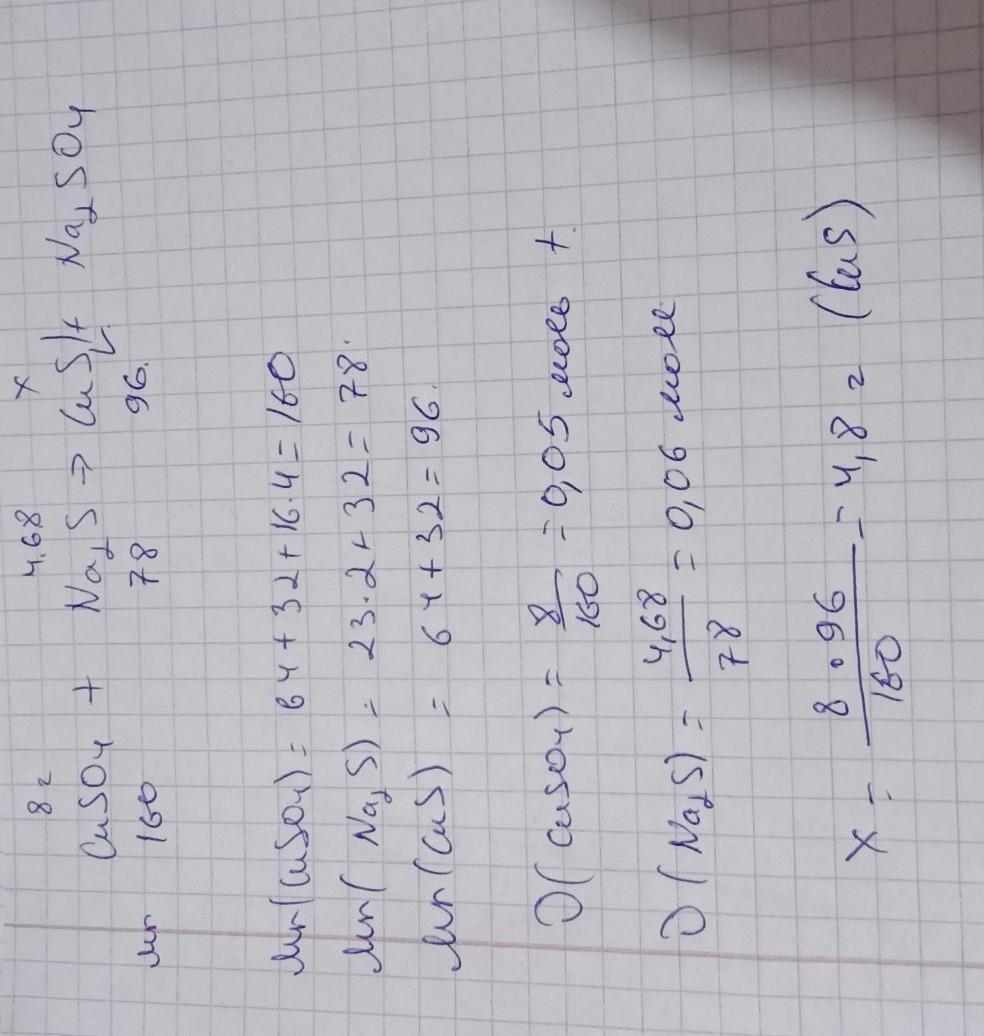 8 г 4.68 x
CuSO4 + Na2S → CuS↓ + Na2SO4
Mr 160 78 96.
Mr(CuSO4) = 64 + 32 + 16·4 = 160
Mr(Na2S) = 23·2 + 32 = 78.
Mr(CuS) = 64 + 32 = 96.
ν(CuSO4) = 8/160 = 0,05 моль +.
ν(Na2S) = 4,68/78 = 0,06 моль
x = 8·96/160 = 4,8 г (CuS)